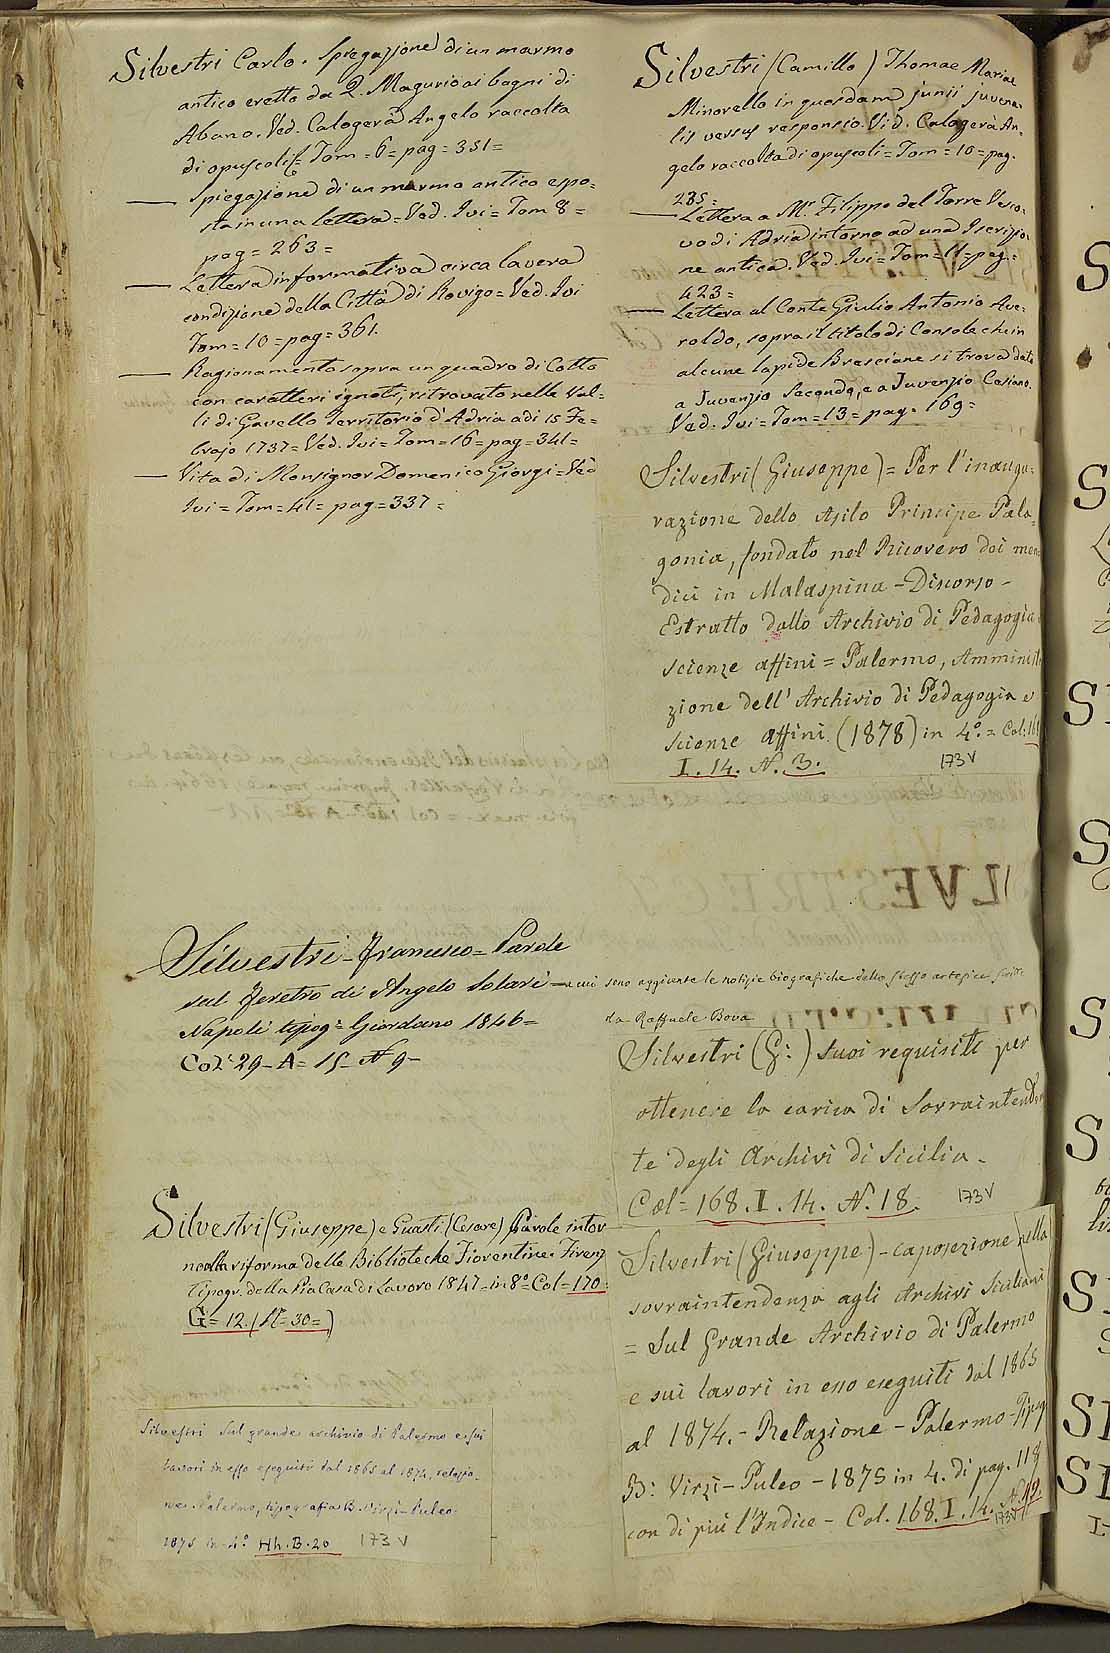 Silvestri Carlo. Spiegazione di un marmo
antico eretto da Q. Magurio ai bagni di
Abano. Ved. Calogerà Angelo raccolta
di opuscoli = Tom = 6 = pag = 351 =
— Spiegazione di un marmo antico espo=
sta in una lettera = Ved. Ivi = Tom 8 =
pag = 263 =
— Lettera informativa circa la vera
condizione della Città di Rovigo = Ved. Ivi
Tom = 10 = pag = 361.
— Ragionamento sopra un quadro di Cotto
con caratteri ignoti, ritrovato nelle Val=
li di Gavello Territorio d'Adria adi 15 Fe=
brajo 1737 = Ved. Ivi = Tom = 16 = pag = 341 =
— Vita di Monsignor Domenico Giorgi = Ved
Ivi = Tom = 41 = pag = 337 =
Silvestri - Francesco = Parole
sul feretro di Angelo Solari = a cui sono aggiunte le notizie biografiche dello stesso artefice scritte
da Raffaele Bova
Napoli tipog: Giordano 1846 =
Col: 29 - A = 15 - N 9 -
Silvestri (Giuseppe) e Guasti (Cesare) Parole intor
no alla riforma delle Biblioteche Fiorentine. Firenz
Tipogr. della Pia Casa di Lavoro 1847 = in 8° = Col = 170 =
G = 12. (N = 30 = )
Silvestri Sul grande archivio di Palermo e sui
lavori in esso eseguiti dal 1865 al 1874, relazio-
ne. Palermo, tipografia B. Virzì-Puleo.
1875 in 4.° Hh. B. 20 173 V
Silvestri (Camillo) Thomae Mariae
Minorello in quosdam junii juvena=
lis versus responsio. Vid. Calogerà An=
gelo raccolta di opuscoli = Tom = 10 = pag.
285 =
— Lettera a Mr. Filippo del Torre Vesco=
vo di Adria intorno ad una Iscrizio=
ne antica. Ved. Ivi = Tom = 11 = pag =
423 =
— Lettera al Conte Giulio Antonio Ave=
roldo, sopra il titolo di Console che in
alcune lapide Bresciane si trova dato
a Juvenzio Secondo, e a Juvenzio Casiano.
Ved. Ivi = Tom = 13 = pag = 169 =
Silvestri (Giuseppe) = Per l'inaugu=
razione dello Asilo Principe Pala=
gonia, fondato nel Ricovero dei men
dici in Malaspina - Discorso -
Estratto dallo Archivio di Pedagogia
scienze affini = Palermo, Amminist
zione dell' Archivio di Pedagogia e
scienze affini (1878) in 4.° = Col: 168
I. 14. N. 3. 173 V
Silvestri (G:) Suoi requisiti per
ottenere la carica di Sovraintenden
te degli Archivi di Sicilia -
Col = 168. I. 14. N. 18. 173 V
Silvestri (Giuseppe) - caposezione nella
sovraintendenza agli Archivi Siciliani
= Sul Grande Archivio di Palermo
e sui lavori in esso eseguiti dal 1865
al 1874. - Relazione - Palermo - Tipog
B: Virzì - Puleo - 1875 in 4. di pag. 118
con di più l'Indice - Col. 168. I. 14.
173 V